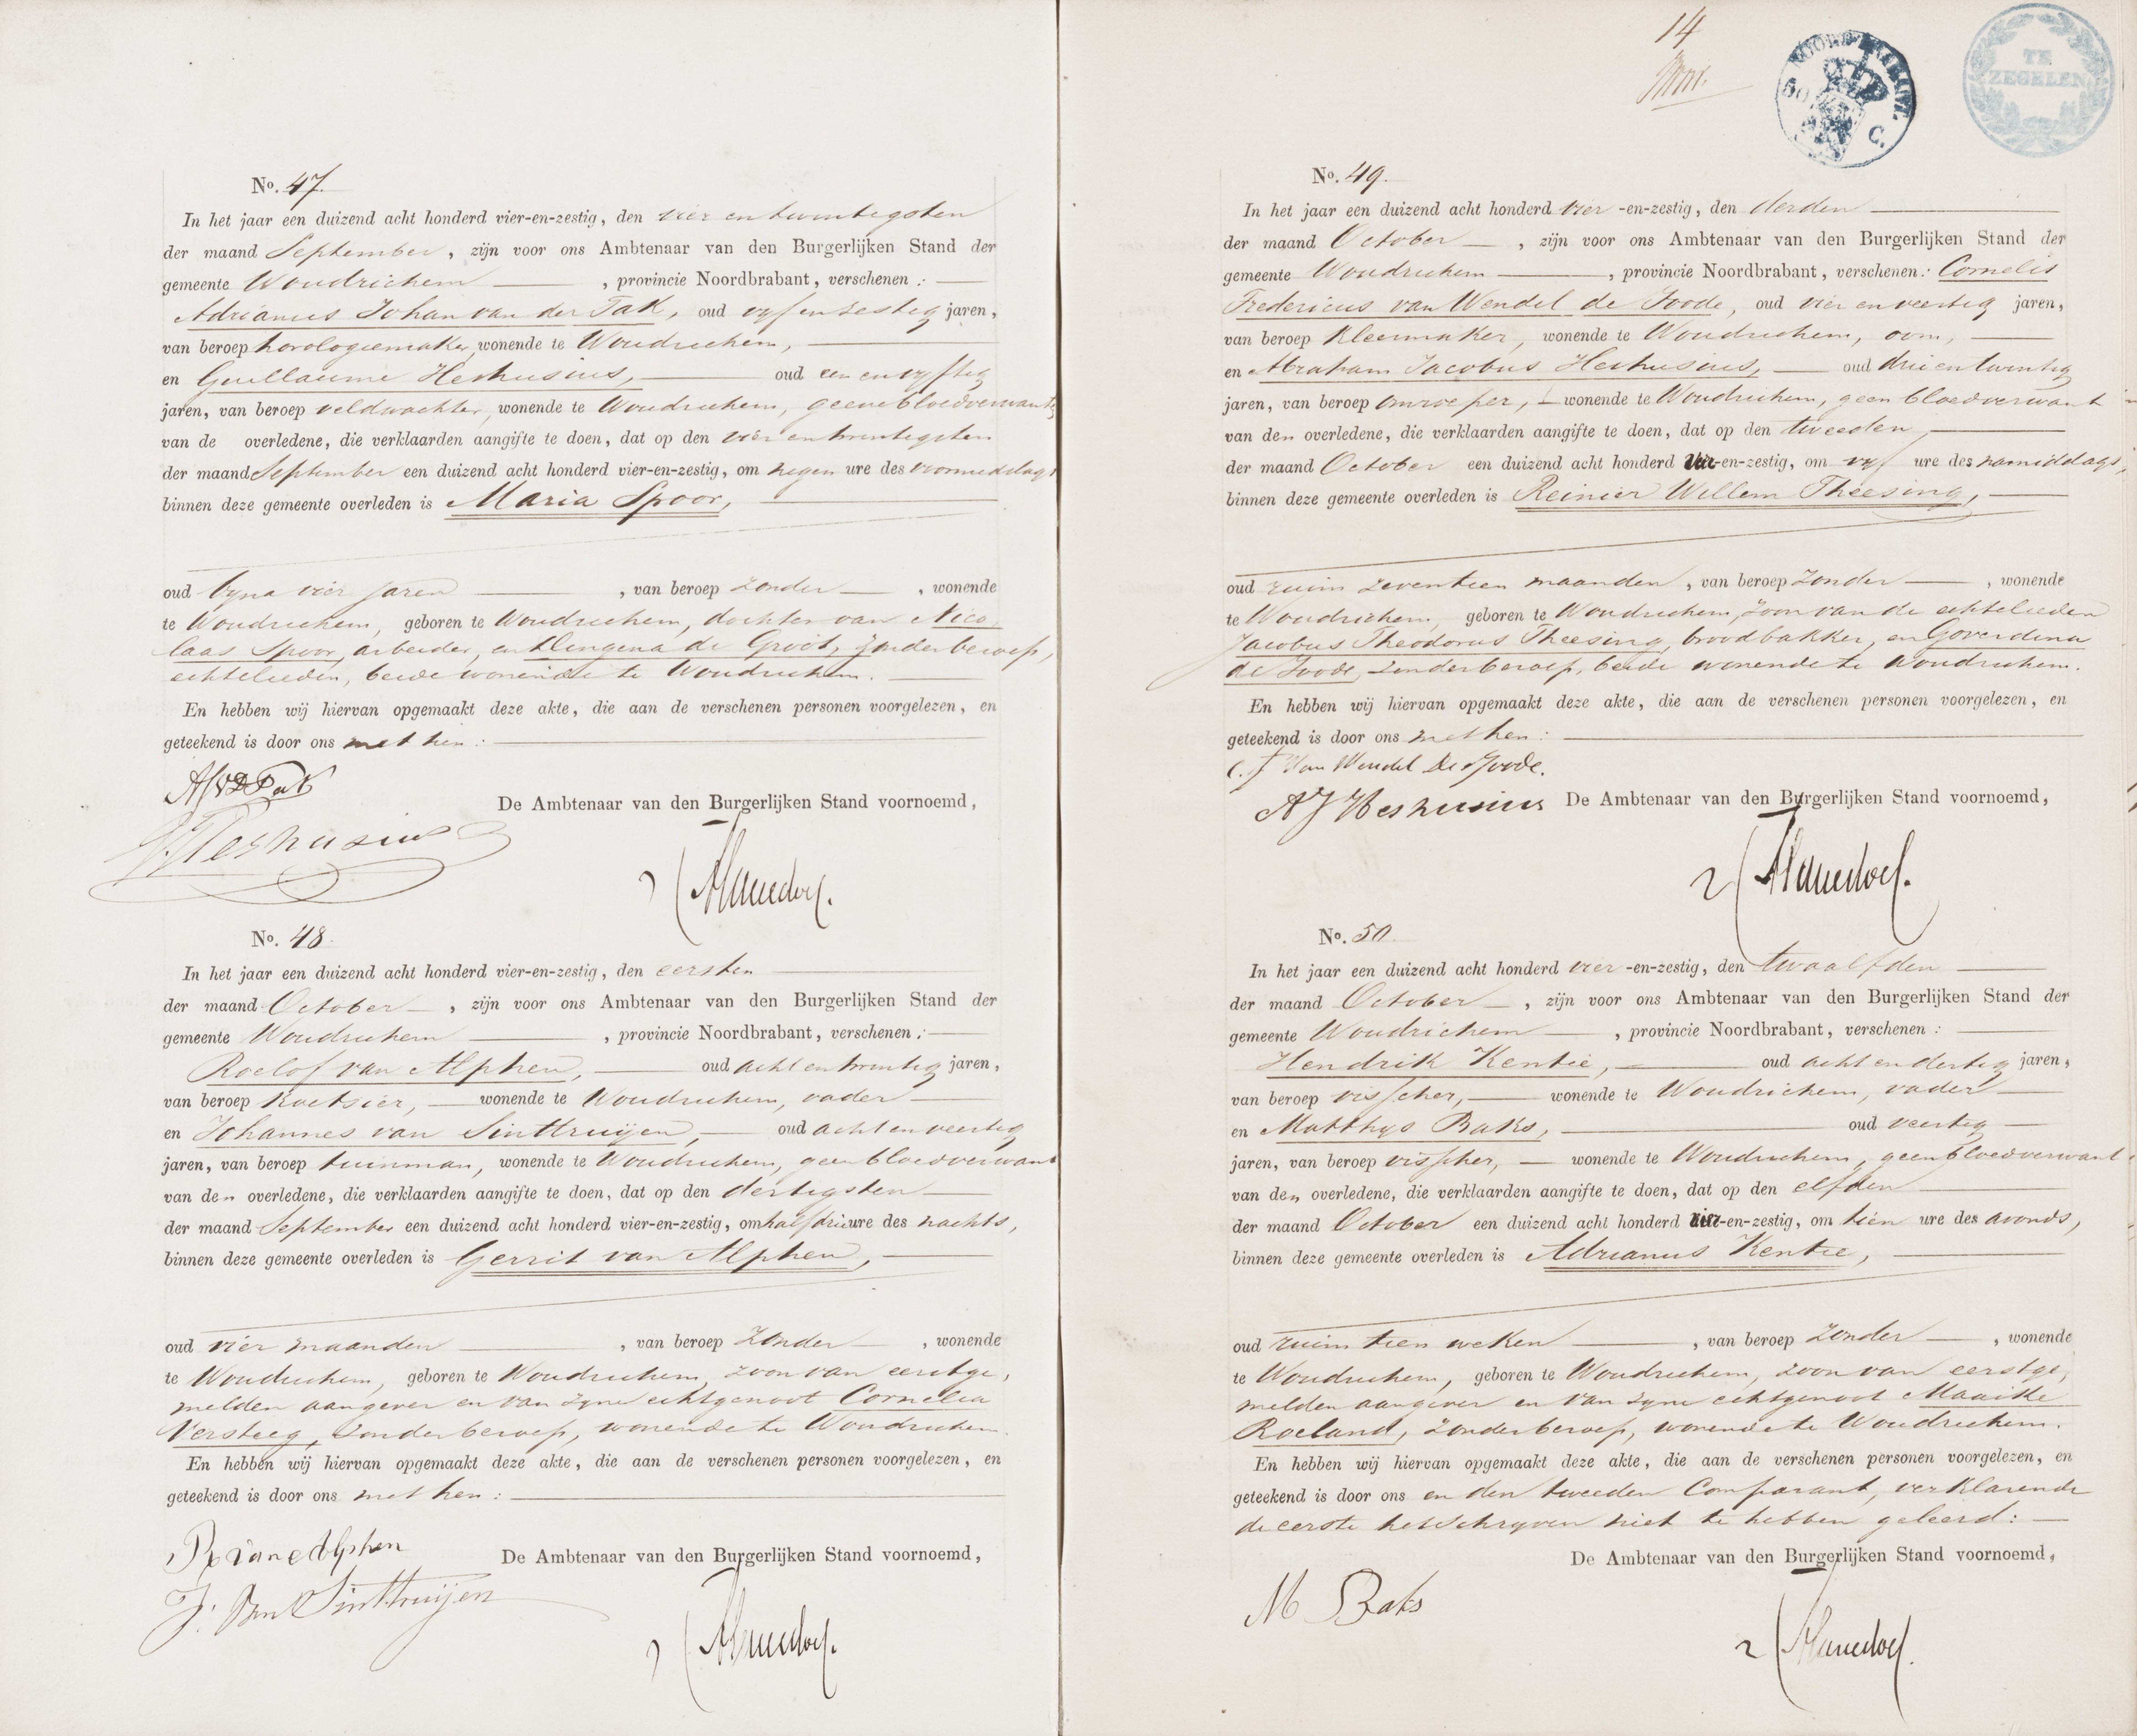 No. 47.
In het jaar een duizend acht honderd vier-en-zestig, den vier en twintigsten
der maand September, zijn voor ons Ambtenaar van den Burgerlijken Stand der
gemeente Woudrichem, provincie Noordbrabant, verschenen:
Adrianus Johan van der Tak, oud vyf en zestig jaren,
van beroep horologiemaker, wonende te Woudrichem,
en Guillaume Heshusius, oud een en vyftig
jaren, van beroep veldwachter, wonende te Woudrichem, geene bloedverwanten
van de overledene, die verklaarden aangifte te doen, dat op den vier en twintigsten
der maand September een duizend acht honderd vier-en-zestig, om negen ure des voormiddags
binnen deze gemeente overleden is Maria Spoor,
oud byna vier jaren, van beroep zonder, wonende
te Woudrichem, geboren te Woudrichem, dochter van Nico
laas Spoor, arbeider, en Klingena de Groot, zonder beroep,
echtelieden, beide wonende te Woudrichem.
En hebben wij hiervan opgemaakt deze akte, die aan de verschenen personen voorgelezen, en
geteekend is door ons met hen:
AJVDTak
De Ambtenaar van den Burgerlijken Stand voornoemd,
G. Heshusius
No. 48.
In het jaar een duizend acht honderd vier-en-zestig, den eersten
der maand October, zijn voor ons Ambtenaar van den Burgerlijken Stand der
gemeente Woudrichem, provincie Noordbrabant, verschenen:
Roelof van Alphen, oud acht en twintig jaren,
van beroep koetsier, wonende te Woudrichem, vader
en Johannes van Sinttruijen, oud acht en veertig
jaren, van beroep tuinman, wonende te Woudrichem, geen bloedverwant
van den overledene, die verklaarden aangifte te doen, dat op den dertigsten
der maand September een duizend acht honderd vier-en-zestig, om half drie ure des nachts,
binnen deze gemeente overleden is Gerrit van Alphen,
oud vier maanden, van beroep zonder, wonende
te Woudrichem, geboren te Woudrichem, zoon van eerstge,
melden aangever en van zyne echtgenoot Cornelia
Versteeg, zonder beroep, wonende te Woudrichem.
En hebben wij hiervan opgemaakt deze akte, die aan de verschenen personen voorgelezen, en
geteekend is door ons met hen:
R van Alphen
De Ambtenaar van den Burgerlijken Stand voornoemd,
J. Van Sinttruijen
14
NOORD BRABANT.
50 C.
TE
ZEGELEN
No. 49.
In het jaar een duizend acht honderd vier-en-zestig, den derden
der maand October, zijn voor ons Ambtenaar van den Burgerlijken Stand der
gemeente Woudrichem, provincie Noordbrabant, verschenen: Cornelis
Fredericus van Wendel de Joode, oud vier en veertig jaren,
van beroep kleermaker, wonende te Woudrichem, oom,
en Abraham Jacobus Heshusius, oud drie en twintig
jaren, van beroep omroeper, wonende te Woudrichem, geen bloedverwant
van den overledene, die verklaarden aangifte te doen, dat op den tweeden
der maand October een duizend acht honderd vier-en-zestig, om vyf ure des namiddags,
binnen deze gemeente overleden is Reinier Willem Theesing,
oud ruim zeventien maanden, van beroep zonder, wonende
te Woudrichem, geboren te Woudrichem, zoon van de echtelieden
Jacobus Theodorus Theesing, broodbakker, en Goverdina
de Joode, zonder beroep, beide wonende te Woudrichem.
En hebben wij hiervan opgemaakt deze akte, die aan de verschenen personen voorgelezen, en
geteekend is door ons met hen:
C. F Van Wendel De Joode.
AJ Heshusius De Ambtenaar van den Burgerlijken Stand voornoemd,
No. 50.
In het jaar een duizend acht honderd vier-en-zestig, den twaalfden
der maand October, zijn voor ons Ambtenaar van den Burgerlijken Stand der
gemeente Woudrichem, provincie Noordbrabant, verschenen:
Hendrik Kentie, oud acht en dertig jaren,
van beroep visscher, wonende te Woudrichem, vader
en Matthys Baks, oud veertig
jaren, van beroep visscher, wonende te Woudrichem, geen bloedverwant
van den overledene, die verklaarden aangifte te doen, dat op den elfden
der maand October een duizend acht honderd vier-en-zestig, om tien ure des avonds,
binnen deze gemeente overleden is Adrianus Kentie,
oud ruim tien weken, van beroep zonder, wonende
te Woudrichem, geboren te Woudrichem, zoon van eerstge,
melden aangever en van zyne echtgenoot Maaike
Roeland, zonder beroep, wonende te Woudrichem.
En hebben wij hiervan opgemaakt deze akte, die aan de verschenen personen voorgelezen, en
geteekend is door ons en den tweeden Comparant, verklarende
de eerste het schryven niet te hebben geleerd:
De Ambtenaar van den Burgerlijken Stand voornoemd,
M Baks